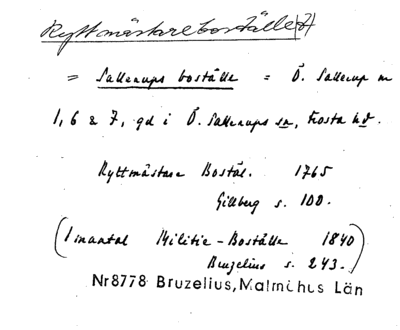 Ryttmästareboställe(t)
= Sallerups boställe = Ö. Sallerup n
1, 6 & 7, gd i Ö. Sallerups sn, Frosta hd.
Ryttmästare Bostäl. 1765
Gillberg s. 100.
(1 mantal Militie-Boställe 1840)
Bruzelius s. 243.
Nr8778 Bruzelius, Malmöhus Län